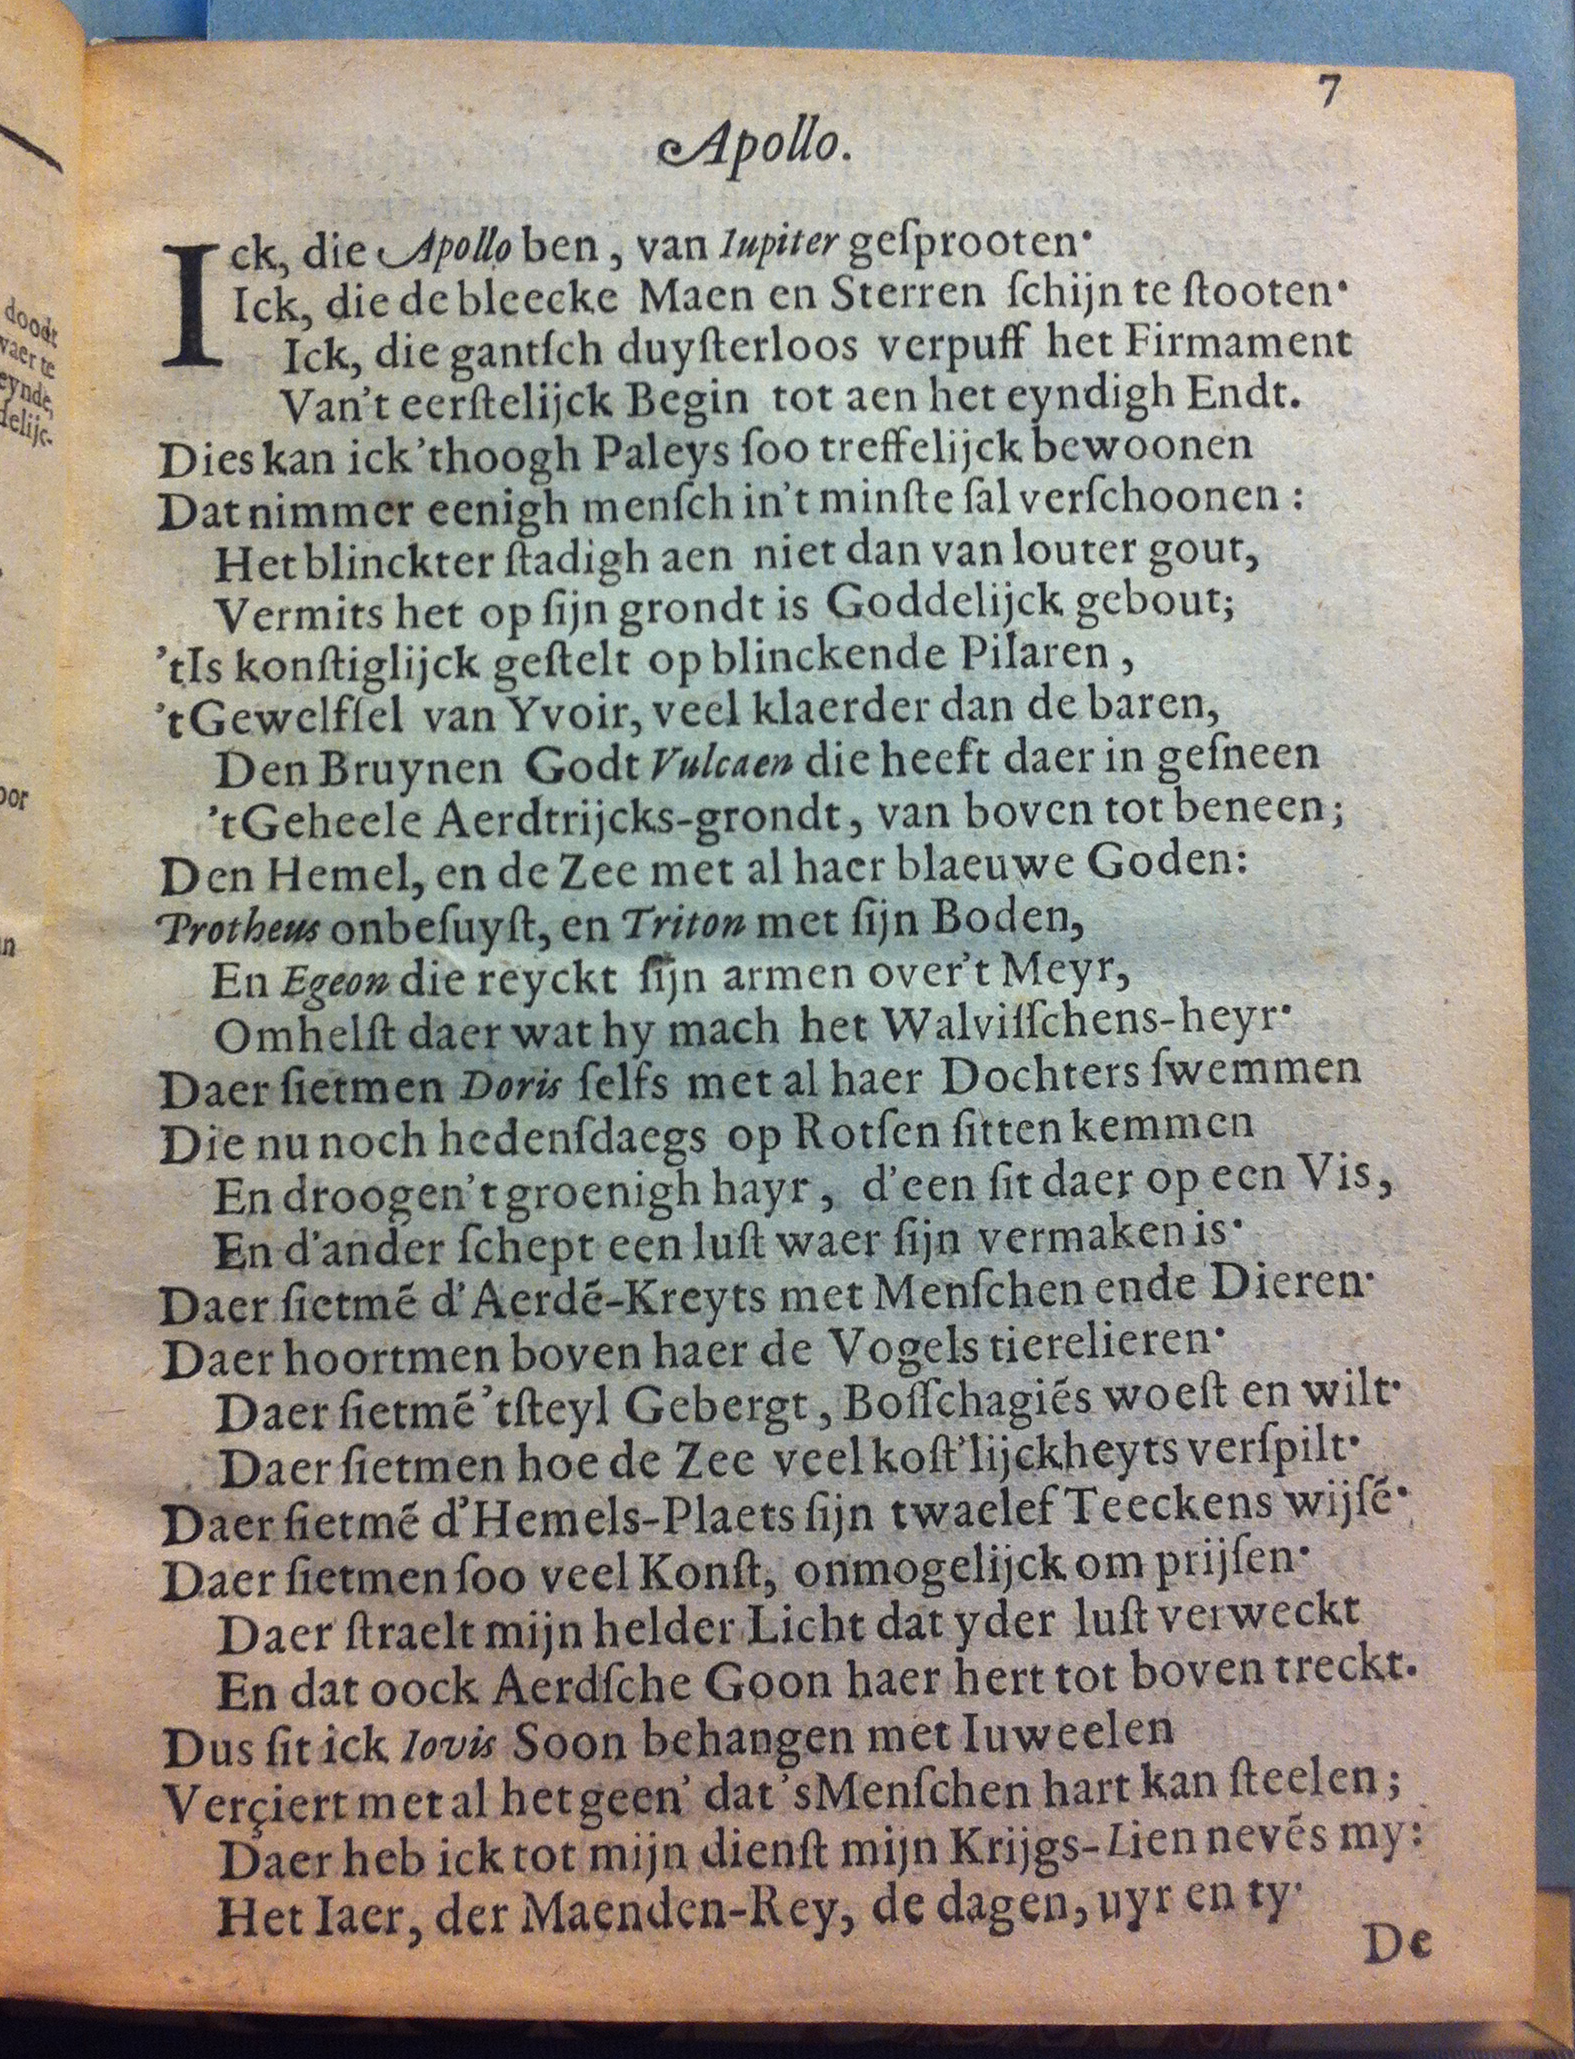 7
Apollo.
Ick, die Apollo ben, van Iupiter geſprooten·
Ick, die de bleecke Maen en Sterren ſchijn te ſtooten·
Ick, die gantſch duyſterloos verpuff het Firmament
Van't eerſtelijck Begin tot aen het eyndigh Endt.
Dies kan ick 'thoogh Paleys ſoo treffelijck bewoonen
Dat nimmer eenigh menſch in't minſte ſal verſchoonen :
Het blinckter ſtadigh aen niet dan van louter gout,
Vermits het op ſijn grondt is Goddelijck gebout;
'tIs konſtiglijck geſtelt op blinckende Pilaren,
'tGewelfſel van Yvoir, veel klaerder dan de baren,
Den Bruynen Godt Vulcaen die heeft daer in geſneen
'tGeheele Aerdtrijcks-grondt, van boven tot beneen;
Den Hemel, en de Zee met al haer blaeuwe Goden:
Protheus onbeſuyſt, en Triton met ſijn Boden,
En Egeon die reyckt ſijn armen over't Meyr,
Omhelſt daer wat hy mach het Walviſſchens-heyr·
Daer ſietmen Doris ſelfs met al haer Dochters ſwemmen
Die nu noch hedenſdaegs op Rotſen ſitten kemmen
En droogen't groenigh hayr, d'een ſit daer op een Vis,
En d'ander ſchept een luſt waer ſijn vermaken is·
Daer ſietmẽ d'Aerdẽ-Kreyts met Menſchen ende Dieren·
Daer hoortmen boven haer de Vogels tierelieren·
Daer ſietmẽ 'tſteyl Gebergt, Boſſchagiẽs woeſt en wilt·
Daer ſietmen hoe de Zee veel koſt'lijckheyts verſpilt·
Daer ſietmẽ d'Hemels-Plaets ſijn twaelef Teeckens wijſẽ·
Daer ſietmen ſoo veel Konſt, onmogelijck om prijſen·
Daer ſtraelt mijn helder Licht dat yder luſt verweckt
En dat oock Aerdſche Goon haer hert tot boven treckt.
Dus ſit ick Iovis Soon behangen met Iuweelen
Verçiert met al het geen' dat 'sMenſchen hart kan ſteelen;
Daer heb ick tot mijn dienſt mijn Krijgs-Lien nevẽs my:
Het Iaer, der Maenden-Rey, de dagen, uyr en ty·
De
doodt
vaer te
eynde,
delijc-
oor